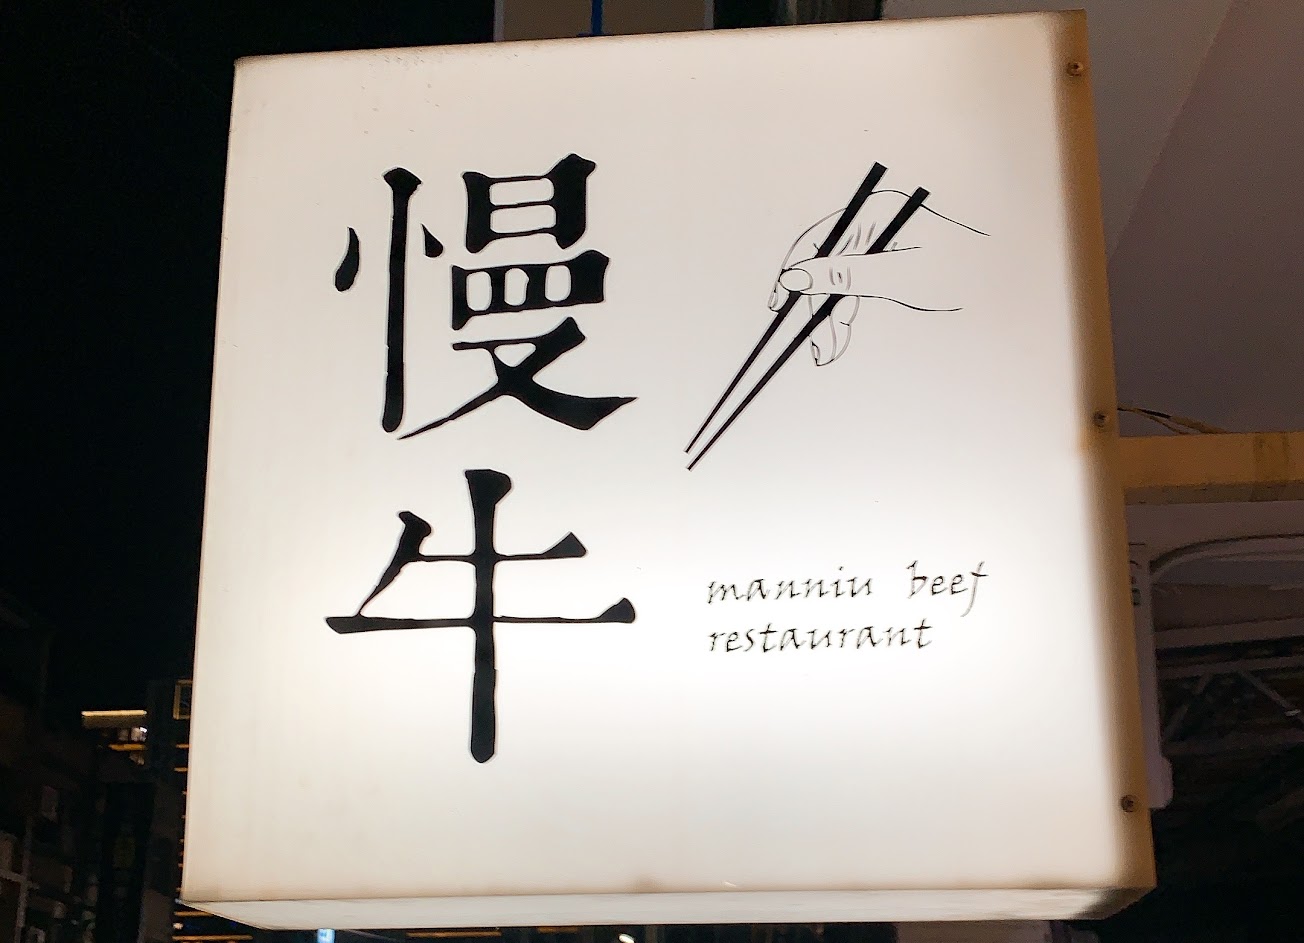 慢牛
manniu beef
restaurant